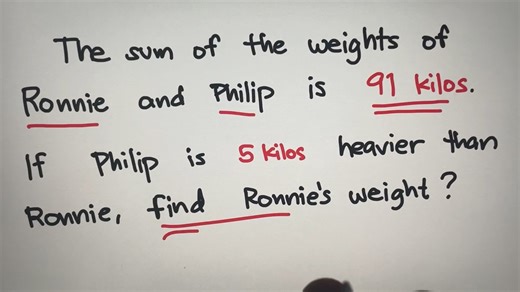 The sum of the weights of
Ronnie and Philip is 91 kilos.
If Philip is 5 kilos heavier than
Ronnie, find Ronnie's weight?